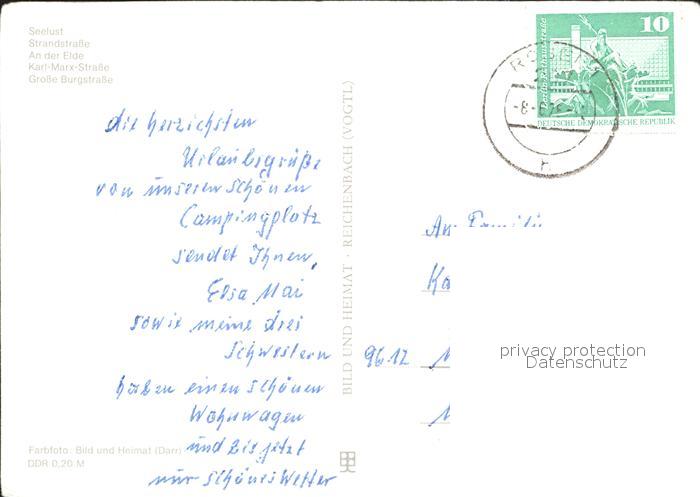 Seelust
Strandstraße
An der Elde
Karl-Marx-Straße
Große Burgstraße
10
Berlin, Rathausstraße
DEUTSCHE DEMOKRATISCHE REPUBLIK
die herzichsten
Urlaubsgrüße
von unseren schönen
Campingplatz
sendet Ihnen,
Mai
sowie meine drei
Schwestern
haben einen schönen
Wohnwagen
und bis jetzt
nur schönes Wetter
An Familie
Ka
9612
privacy protection
Datenschutz
BILD UND HEIMAT · REICHENBACH (VOGTL)
Farbfoto: Bild und Heimat (Darr)
DDR 0,20 M